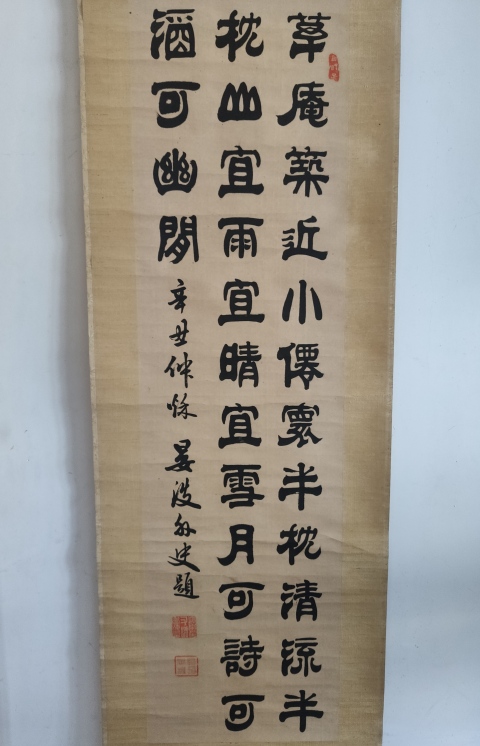 草庵築近小僊寰半枕清流半
枕山宜雨宜晴宜雪月可詩可
酒可幽閒
辛丑仲秋 外史題